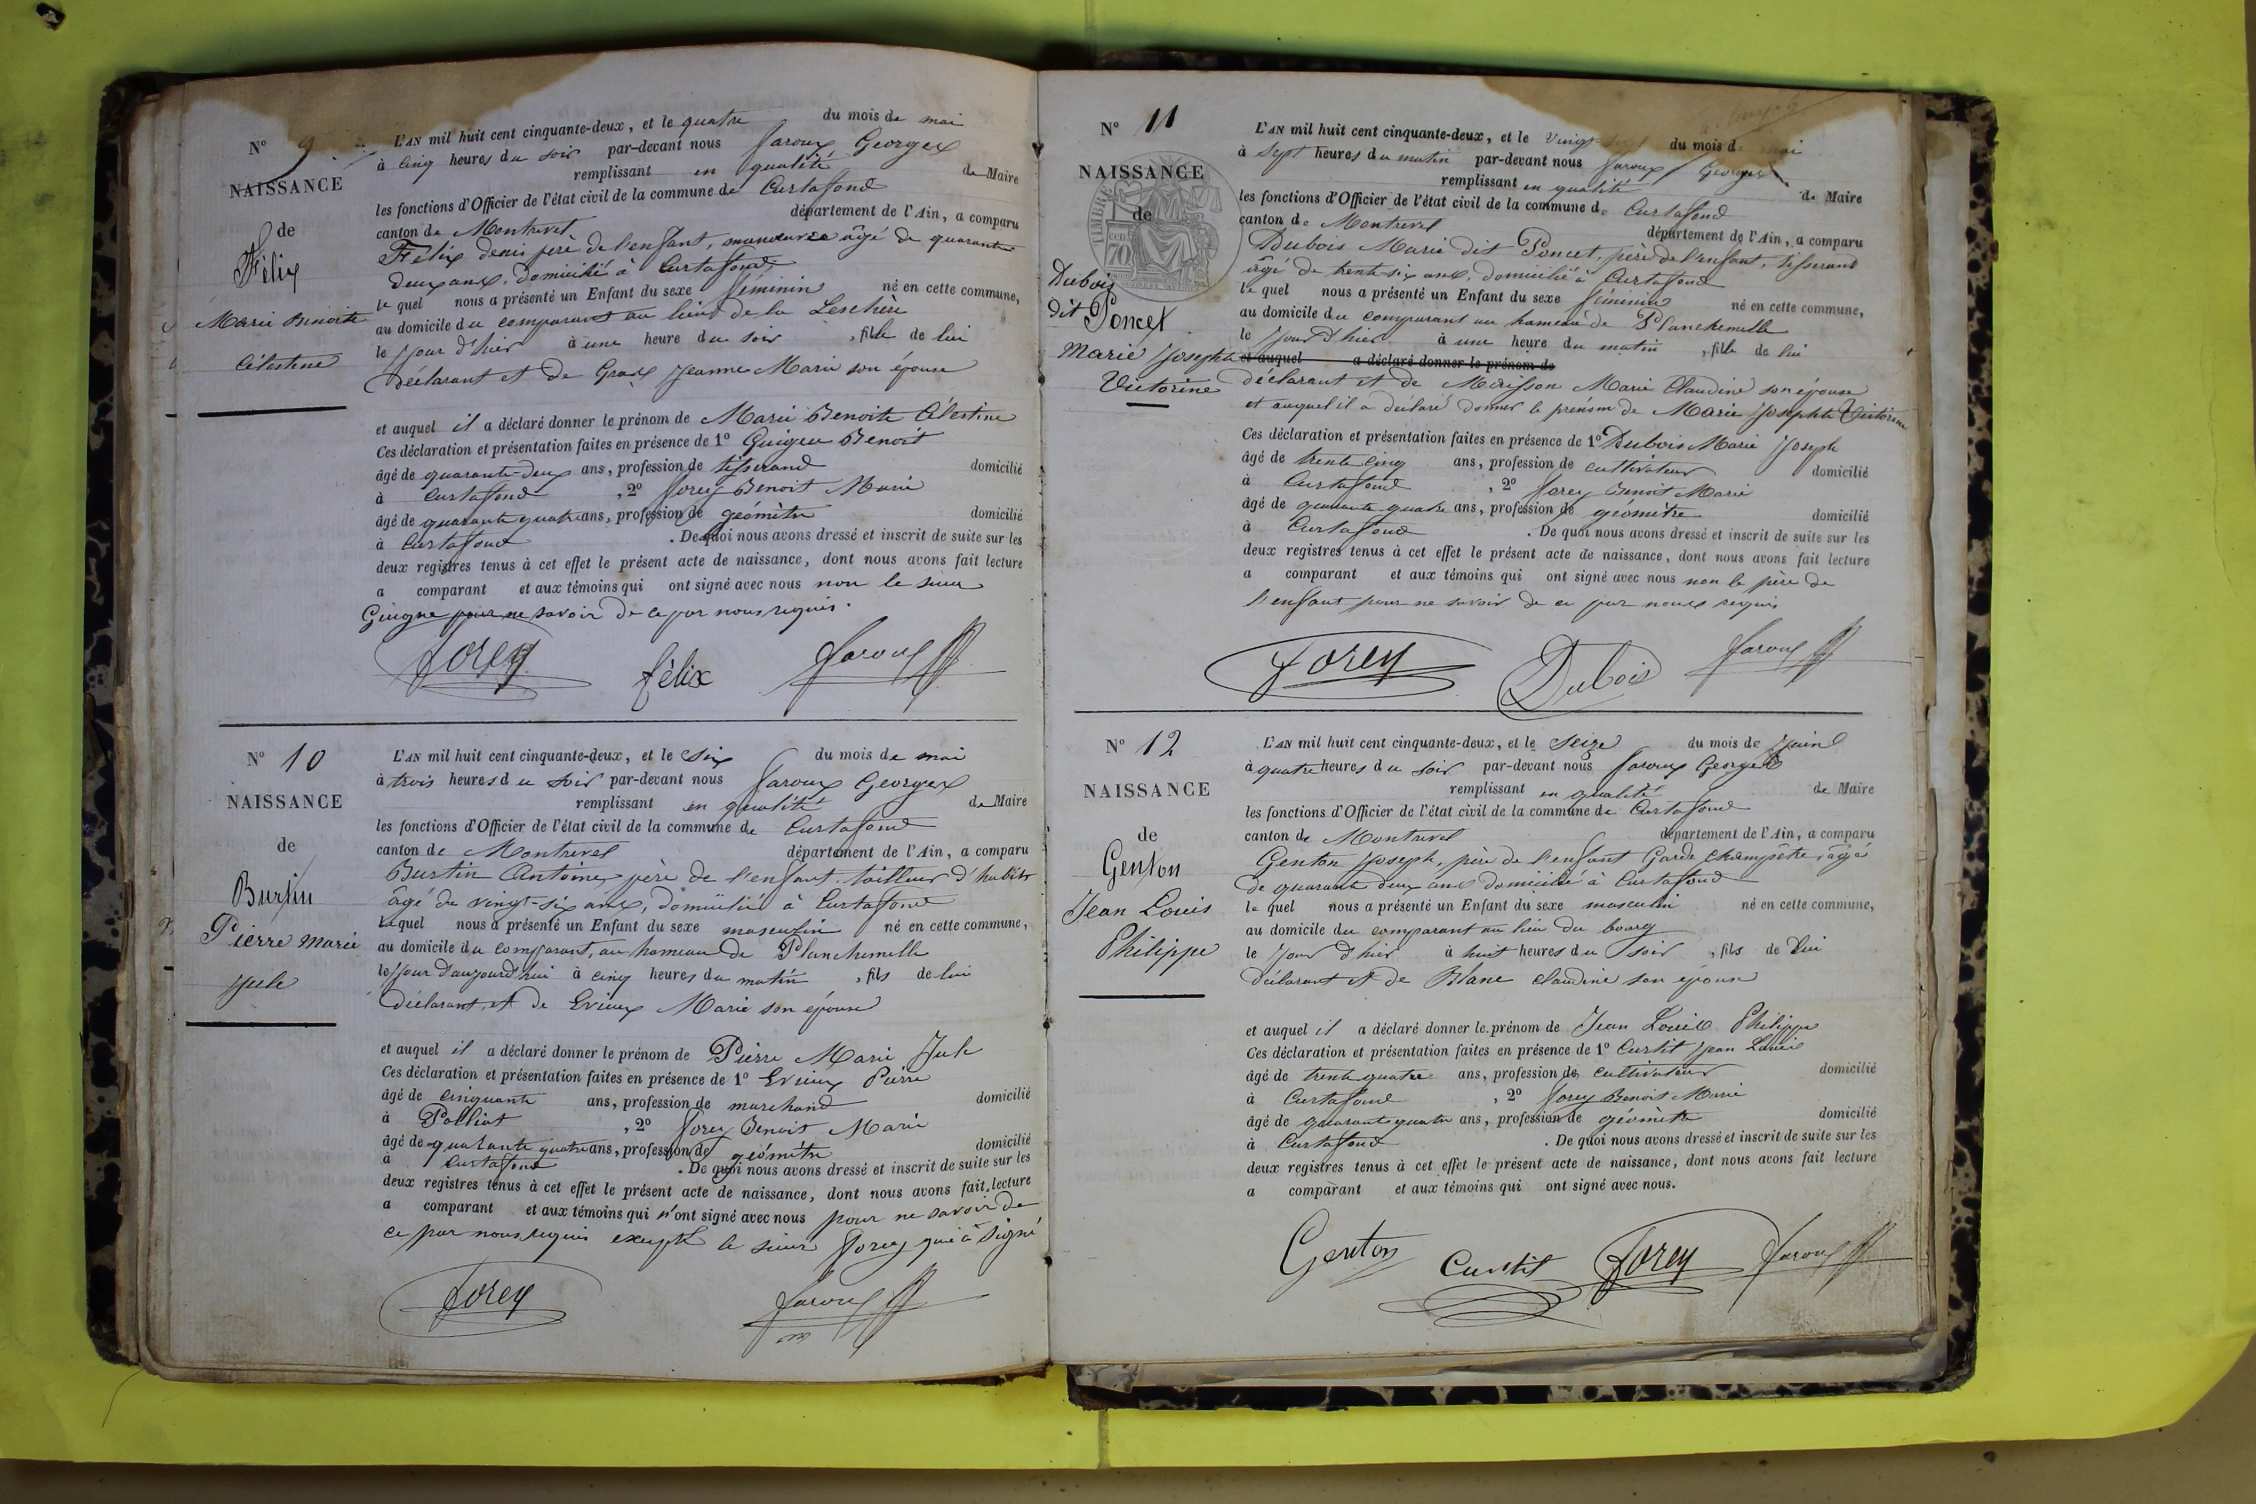 N° 9
NAISSANCE
de
Félix
Marie Benoite
Célestine
L'AN mil huit cent cinquante-deux, et le quatre du mois de mai
à cinq heures du soir par-devant nous Faroux Georges
remplissant en qualité de Maire
les fonctions d'Officier de l'état civil de la commune de Curtafond
canton de Montrevel département de l'Ain, a comparu
Félix denis père de l'enfant, âgé de quarante
deux ans, domicilié à Curtafond
le quel nous a présenté un Enfant du sexe féminin né en cette commune,
au domicile du comparant au lieu de la Leschère
le jour d'hier à une heure du soir, fille de lui
déclarant et de Gras Jeanne Marie son épouse
et auquel il a déclaré donner le prénom de Marie Benoite Célestine
Ces déclaration et présentation faites en présence de 1° Guigue Benoit
âgé de quarante-deux ans, profession de tisserand domicilié
à Curtafond, 2° Forey Benoit Marie
âgé de quarante quatre ans, profession de géomètre domicilié
à Curtafond. De quoi nous avons dressé et inscrit de suite sur les
deux registres tenus à cet effet le présent acte de naissance, dont nous avons fait lecture
a comparant et aux témoins qui ont signé avec nous non le sieur
Guigue pour ne savoir de ce par nous requis.
Forey félix Faroux
N° 10
NAISSANCE
de
Burtin
Pierre Marie
Jule
L'AN mil huit cent cinquante-deux, et le six du mois de mai
à trois heures du soir par-devant nous Faroux Georges
remplissant en qualité de Maire
les fonctions d'Officier de l'état civil de la commune de Curtafond
canton de Montrevel département de l'Ain, a comparu
Burtin Antoine père de l'enfant, tailleur d'habits
âgé de vingt-six ans, domicilié à Curtafond
laquel nous a présenté un Enfant du sexe masculin né en cette commune,
au domicile du comparant, au hameau de Planchemelle
le jour d'aujourd'hui à cinq heures du matin, fils de lui
déclarant, et de Evieux Marie son épouse
et auquel il a déclaré donner le prénom de Pierre Marie Jule
Ces déclaration et présentation faites en présence de 1° Evieux Pierre
âgé de cinquante ans, profession de marchand domicilié
à Polliat, 2° Forey Benoit Marie
âgé de quarante quatre ans, profession de géomètre domicilié
à Curtafond. De quoi nous avons dressé et inscrit de suite sur les
deux registres tenus à cet effet le présent acte de naissance, dont nous avons fait lecture
a comparant et aux témoins qui n'ont signé avec nous pour ne savoir de
ce par nous requis excepté le sieur Forey qui a signé
Forey Faroux
N° 11
NAISSANCE
de
TIMBRE
70
Dubois
dit Poncet
Marie Josephte
Victorine
L'AN mil huit cent cinquante-deux, et le vingt-sept du mois de mai
à sept heures du matin par-devant nous Faroux Georges
remplissant en qualité de Maire
les fonctions d'Officier de l'état civil de la commune de Curtafond
canton de Montrevel département de l'Ain, a comparu
Dubois Marie dit Poncet, père de l'enfant, tisserand
âgé de trente-six ans, domicilié à Curtafond
le quel nous a présenté un Enfant du sexe féminin né en cette commune,
au domicile du comparant au hameau de Planchemelle
le jour d'hier à une heure du matin, fille de lui
et auquel a déclaré donner le prénom de
déclarant et de Marie Claudine son épouse
et auquel il a déclaré donner le prénom de Marie Josephte Victorine
Ces déclaration et présentation faites en présence de 1° Dubois Marie Joseph
âgé de trente cinq ans, profession de cultivateur domicilié
à Curtafond, 2° Forey Benoit Marie
âgé de quarante quatre ans, profession de géomètre domicilié
à Curtafond. De quoi nous avons dressé et inscrit de suite sur les
deux registres tenus à cet effet le présent acte de naissance, dont nous avons fait lecture
a comparant et aux témoins qui ont signé avec nous non le père de
l'enfant pour ne savoir de ce par nous requis
Forey Dubois Faroux
N° 12
NAISSANCE
de
Genton
Jean Louis
Philippe
L'AN mil huit cent cinquante-deux, et le seize du mois de juin
à quatre heures du soir par-devant nous Faroux Georges
remplissant en qualité de Maire
les fonctions d'Officier de l'état civil de la commune de Curtafond
canton de Montrevel département de l'Ain, a comparu
Genton Joseph, père de l'enfant Garde champêtre, âgé
de quarante deux ans domicilié à Curtafond
le quel nous a présenté un Enfant du sexe masculin né en cette commune,
au domicile du comparant au lieu du bourg
le jour d'hier à huit heures du soir, fils de lui
déclarant et de Blanc Claudine son épouse
et auquel il a déclaré donner le prénom de Jean Louis Philippe
Ces déclaration et présentation faites en présence de 1° Curtit Jean Louis
âgé de trente quatre ans, profession de cultivateur domicilié
à Curtafond, 2° Forey Benoit Marie
âgé de quarante quatre ans, profession de géomètre domicilié
à Curtafond. De quoi nous avons dressé et inscrit de suite sur les
deux registres tenus à cet effet le présent acte de naissance, dont nous avons fait lecture
a comparant et aux témoins qui ont signé avec nous.
Genton Curtit Forey Faroux